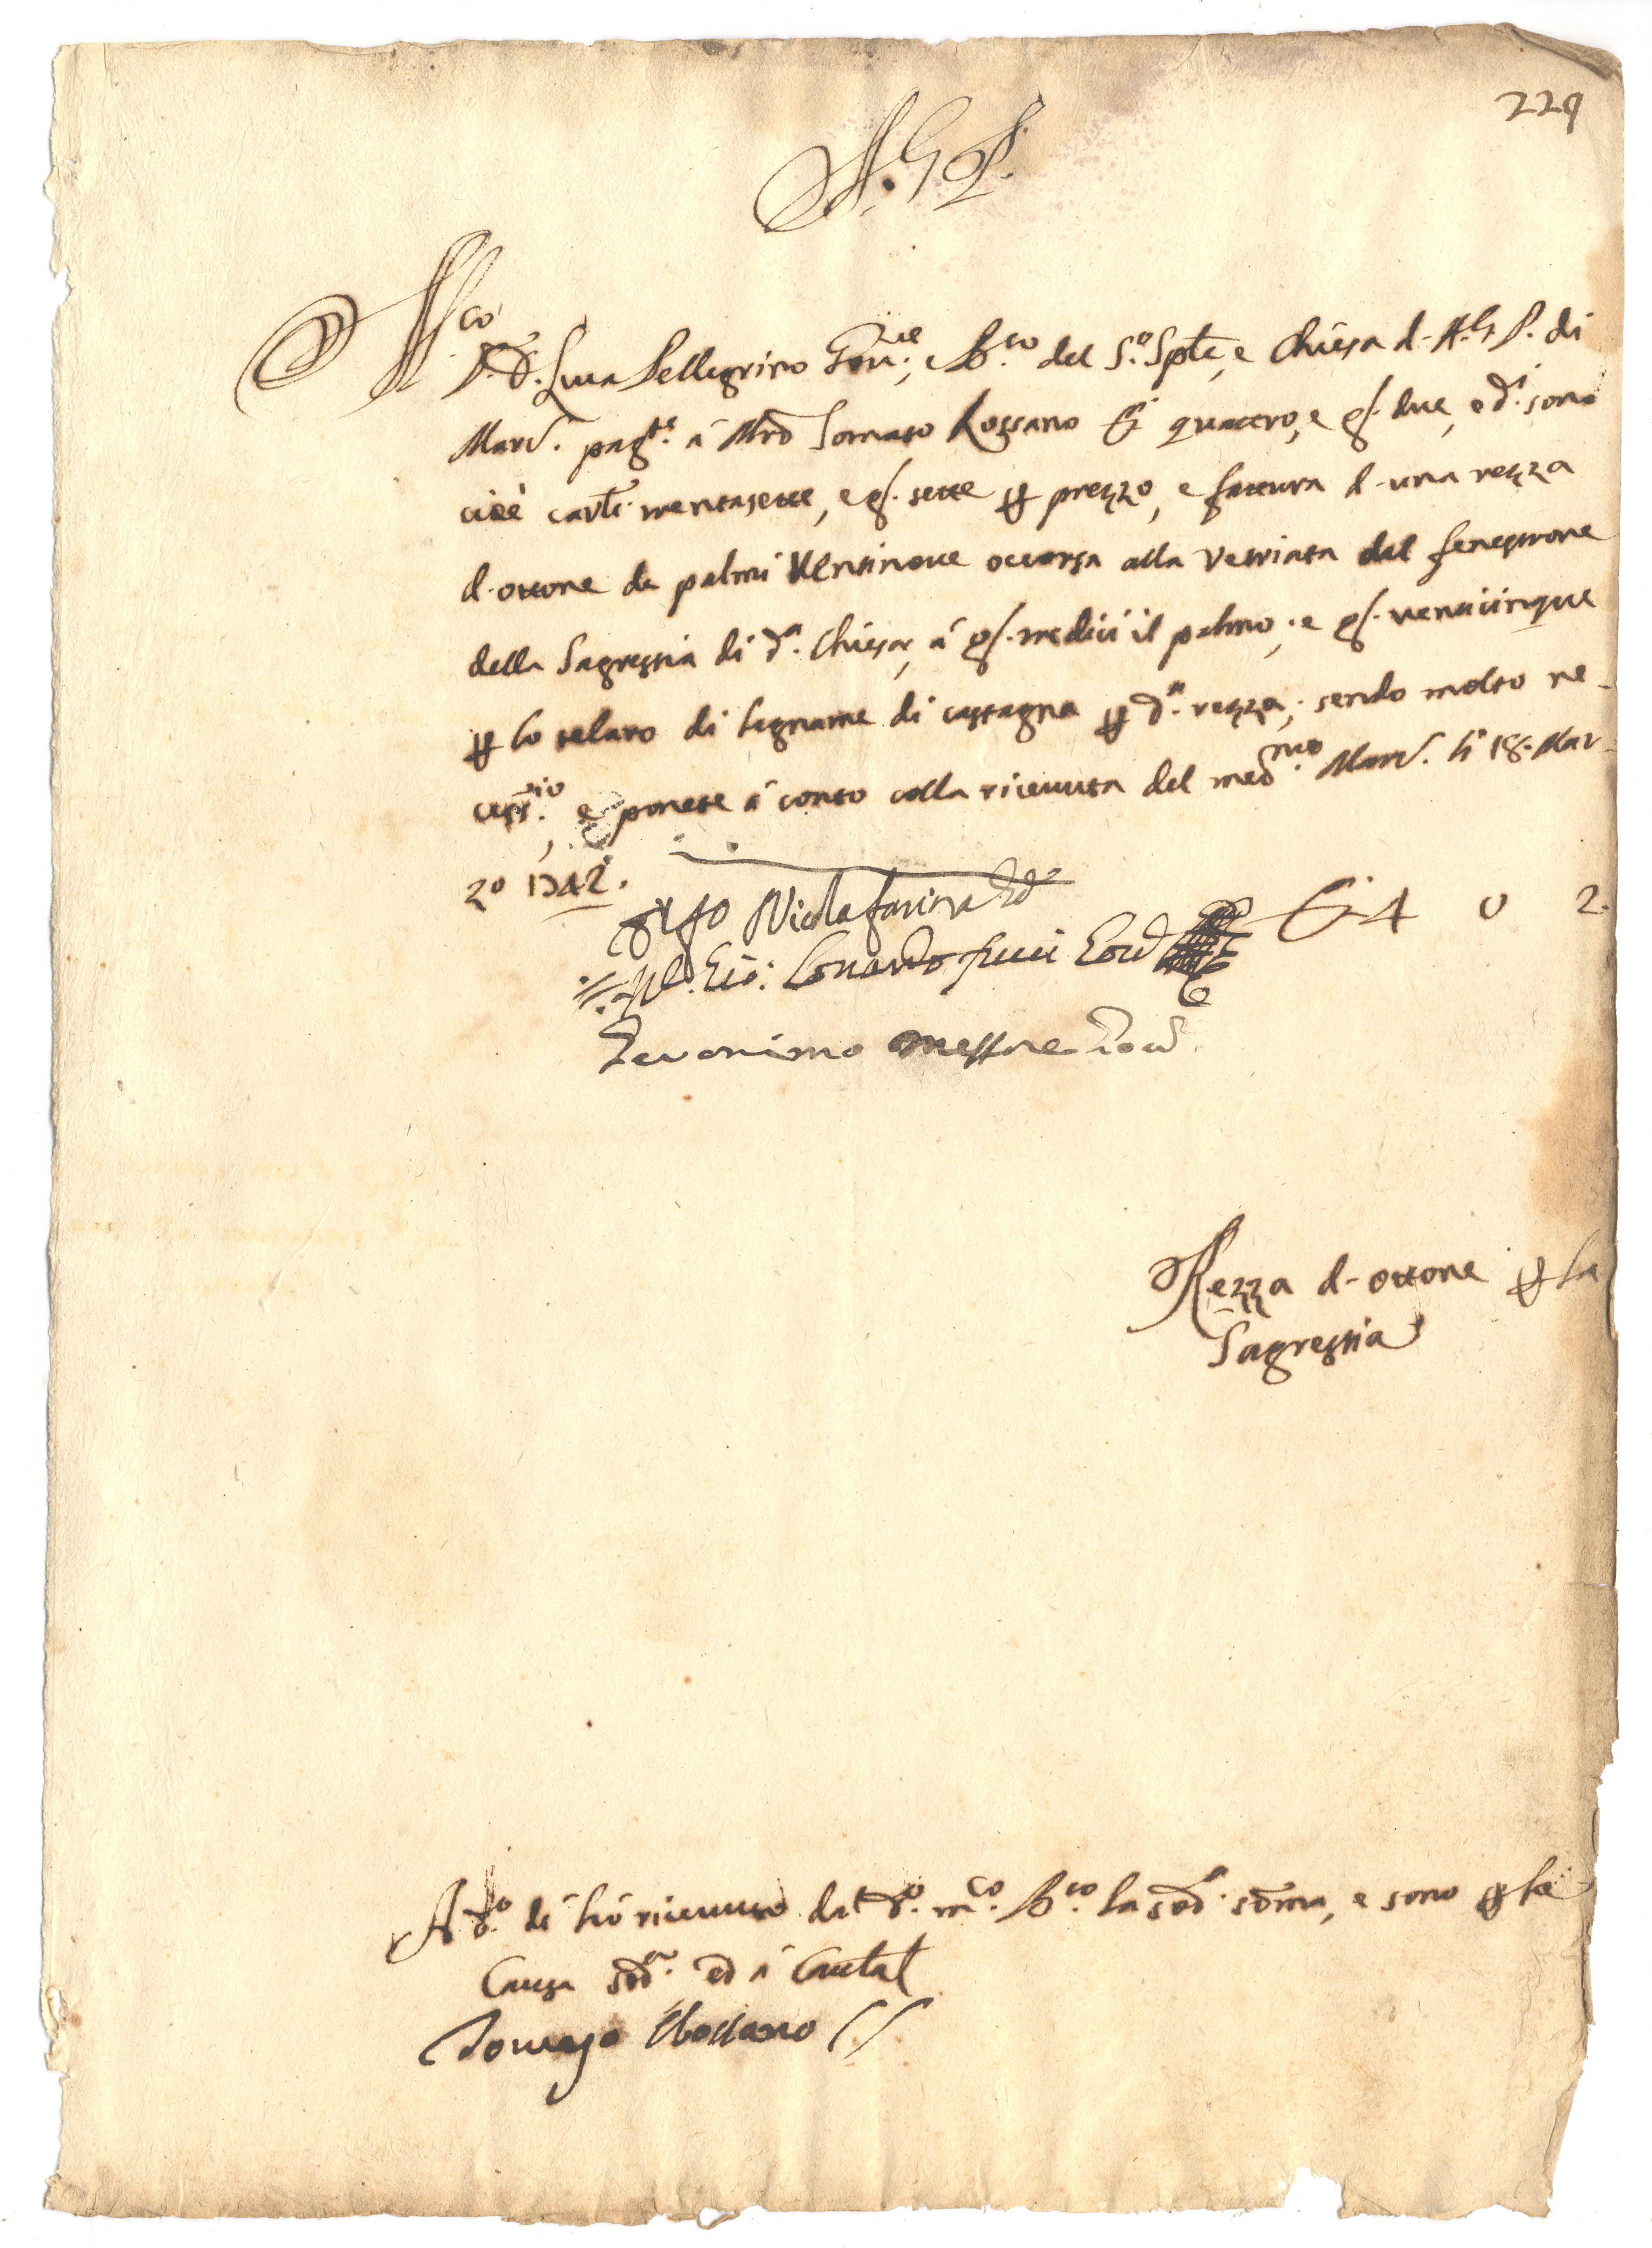 229
A. G. P.
M.co
P. D. Luca Pellegrino Gov.re, e B.co del S.o Sple, e Chiesa d. A. G. P. di
Mard. pag.te á Mro Tomaso Rossano D.i quattro, e g. due, e d.i sono
cioè carli trentasette, e g. sette p prezzo, e fattura d. una rezza
d. ottone de palmi Ventinove occorsa alla Vetriata del fenestrone
della Sagrestia di d.a Chiesa, á g. tredici il palmo; e g. venticinque
p lo telaro di legname di castagna p d.a rezza; sendo molto ne-
cess.rio, e ponete á conto colla ricevuta del med.mo Mard. li 18. Mar-
zo 1742.
Nicola farina
D.i 4 0 2.
Gio: Lonardo fucci Eod
Geronimo Mastore
Rezza d. ottone p la
Sagrestia
A d.o dì hó ricevuto dal d.o m.co B.co la sod.a soma, e sono p la
Causa sod.a ed á Cautal
Tomaso Rossano